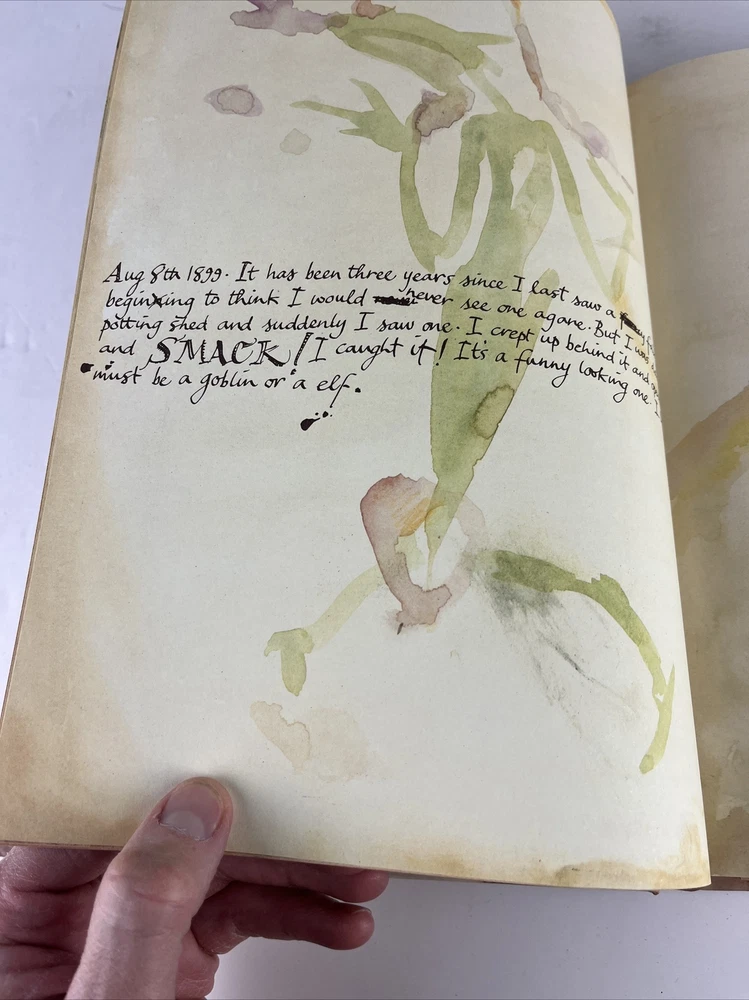 Aug 8th 1899. It has been three years since I last saw a
begining to think I would never see one agane. But I was
potting shed and suddenly I saw one. I crept up behind it and
and SMACK! I caught it! It's a funny looking one. I
must be a goblin or a elf.